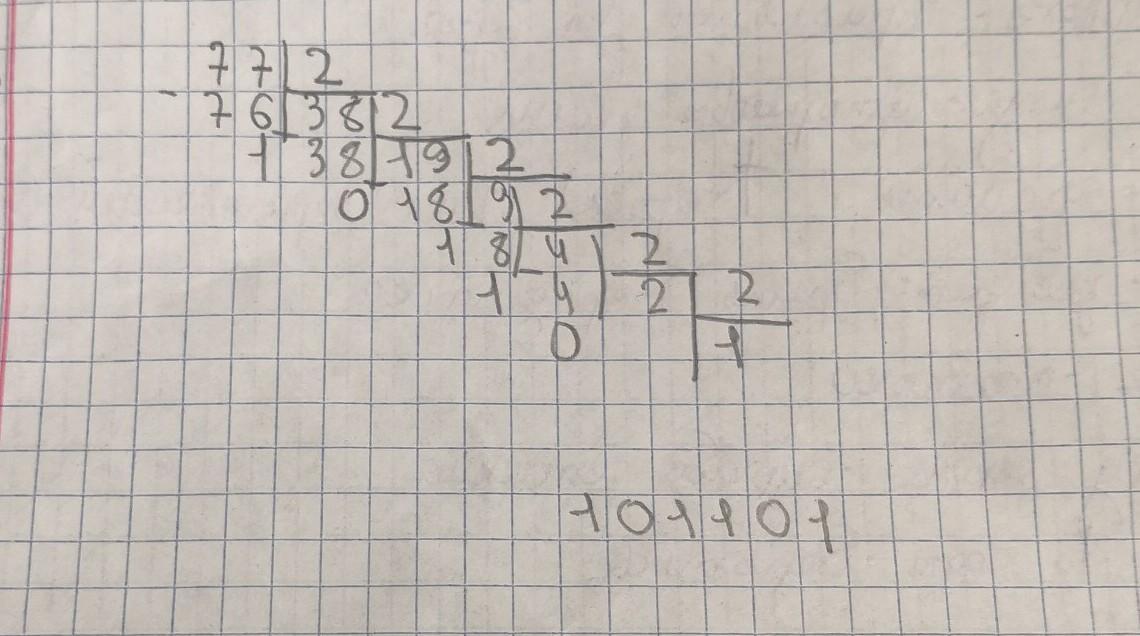 77 2
- 76 38 2
1 38 19 2
0 18 9 2
1 8 4 2
1 4 2 2
0 1
101101